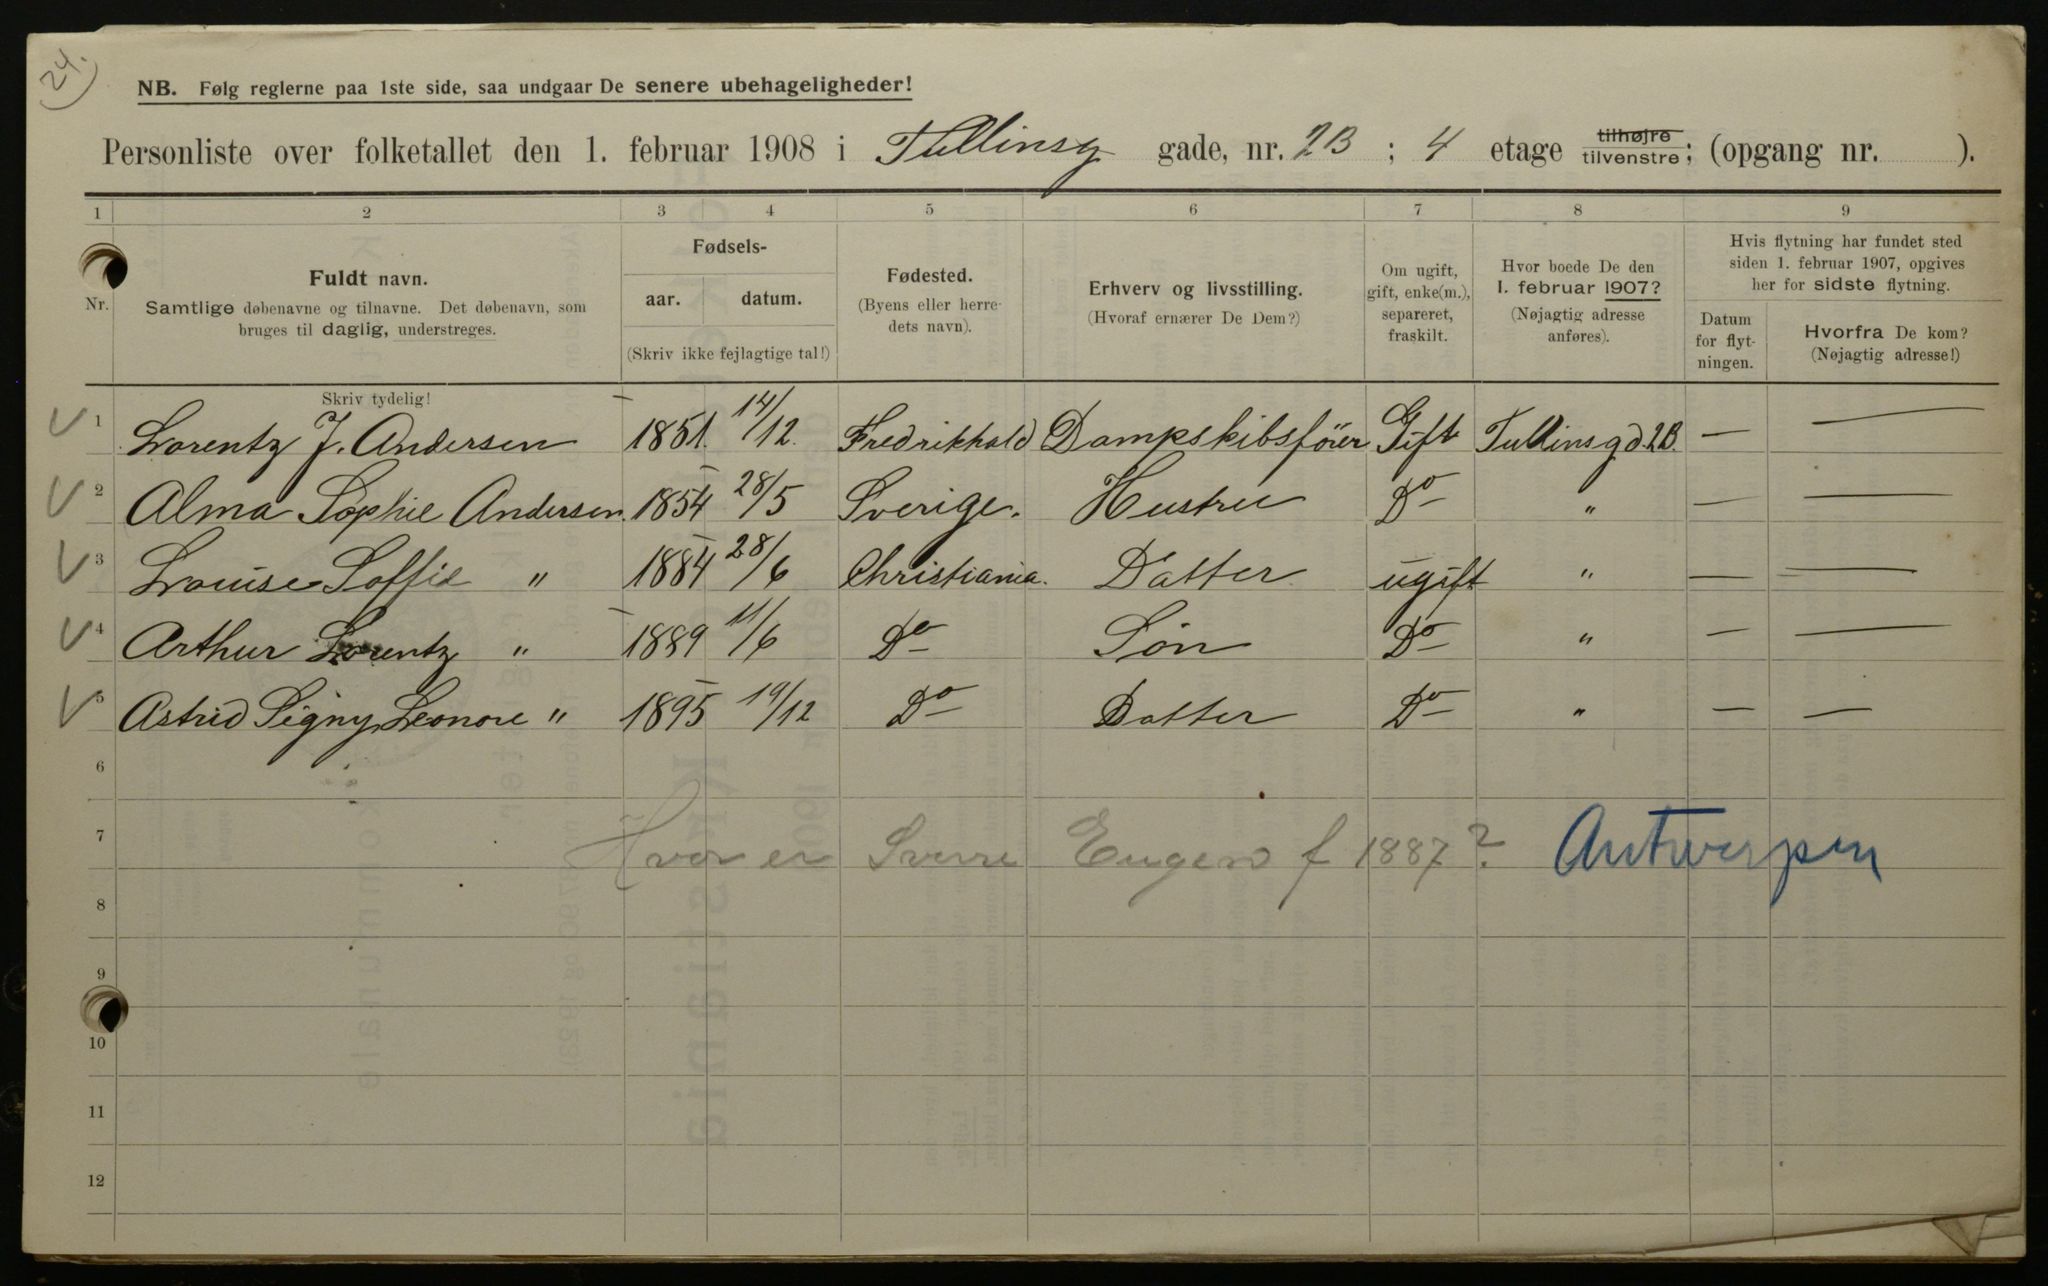 24.
NB. Følg reglerne paa 1ste side, saa undgaar De senere ubehageligheder!
Personliste over folketallet den 1. februar 1908 i Tullinsg gade, nr. 2B ; 4 etage tilhøjre tilvenstre; (opgang nr. ).
1 2 3 4 5 6 7 8 9
Nr.
Fuldt navn.
Samtlige døbenavne og tilnavne. Det døbenavn, som
bruges til daglig, understreges.
Skriv tydelig!
Fødsels-
aar. datum.
(Skriv ikke fejlagtige tal!)
Fødested.
(Byens eller herre-
dets navn).
Erhverv og livsstilling.
(Hvoraf ernærer De Dem?)
Om ugift,
gift, enke(m.),
separeret,
fraskilt.
Hvor boede De den
1. februar 1907?
(Nøjagtig adresse
anføres).
Hvis flytning har fundet sted
siden 1. februar 1907, opgives
her for sidste flytning.
Datum
for flyt-
ningen.
Hvorfra De kom?
(Nøjagtig adresse!)
1 Lorentz J. Andersen 1851. 14/12. Fredrikhald Dampskibsfører Gift Tullinsgd. 2B. — —
2 Alma Sophie Andersen. 1854 28/5 Sverige. Hustru Do — " — —
3 Louise Soffie " 1884 28/6 Christiania. Datter ugift " — —
4 Arthur Lorentz " 1889 11/6 Do — Søn Do — " — —
5 Astrid Signy Leonore " 1895 19/12 Do — Datter Do — " — —
6
7 Hvor er Sverre Eugen f 1887? Antwerpen
8
9
10
11
12